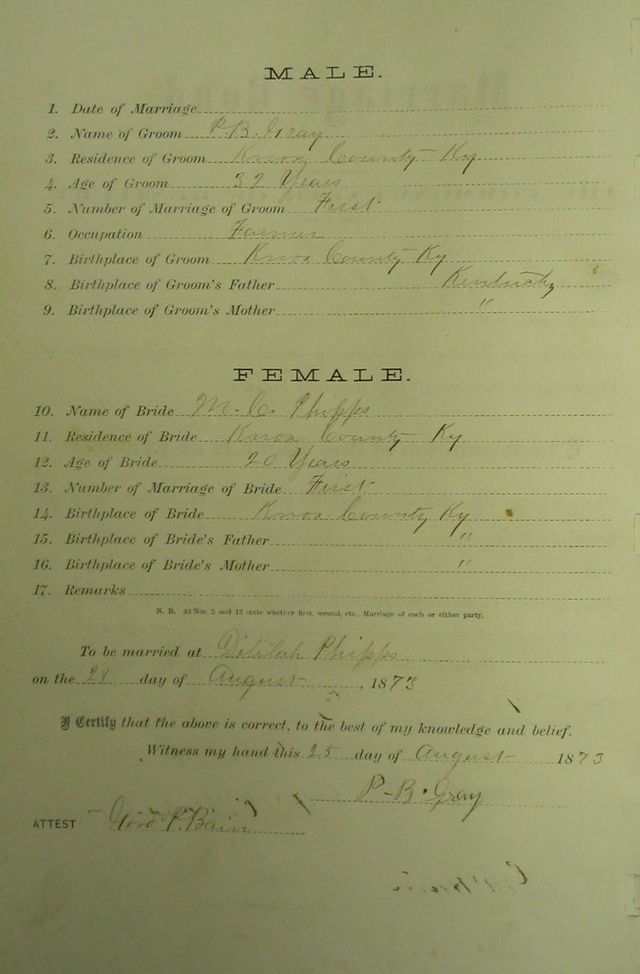 MALE.
1. Date of Marriage
2. Name of Groom P. B. Gray
3. Residence of Groom Knox County Ky
4. Age of Groom 32 Years
5. Number of Marriage of Groom First
6. Occupation Farmer
7. Birthplace of Groom Knox County Ky
8. Birthplace of Groom's Father Kentucky
9. Birthplace of Groom's Mother "
FEMALE.
10. Name of Bride M. C. Phipps
11. Residence of Bride Knox County Ky
12. Age of Bride 20 Years
13. Number of Marriage of Bride First
14. Birthplace of Bride Knox County Ky
15. Birthplace of Bride's Father "
16. Birthplace of Bride's Mother "
17. Remarks
N. B. At Nos. 5 and 13 state whether first, second, etc., Marriage of each or either party.
To be married at Dililah Phipps
on the 28 day of August, 1873
I Certify that the above is correct, to the best of my knowledge and belief.
Witness my hand this 25 day of August 1873
P. B. Gray
ATTEST P. Bain